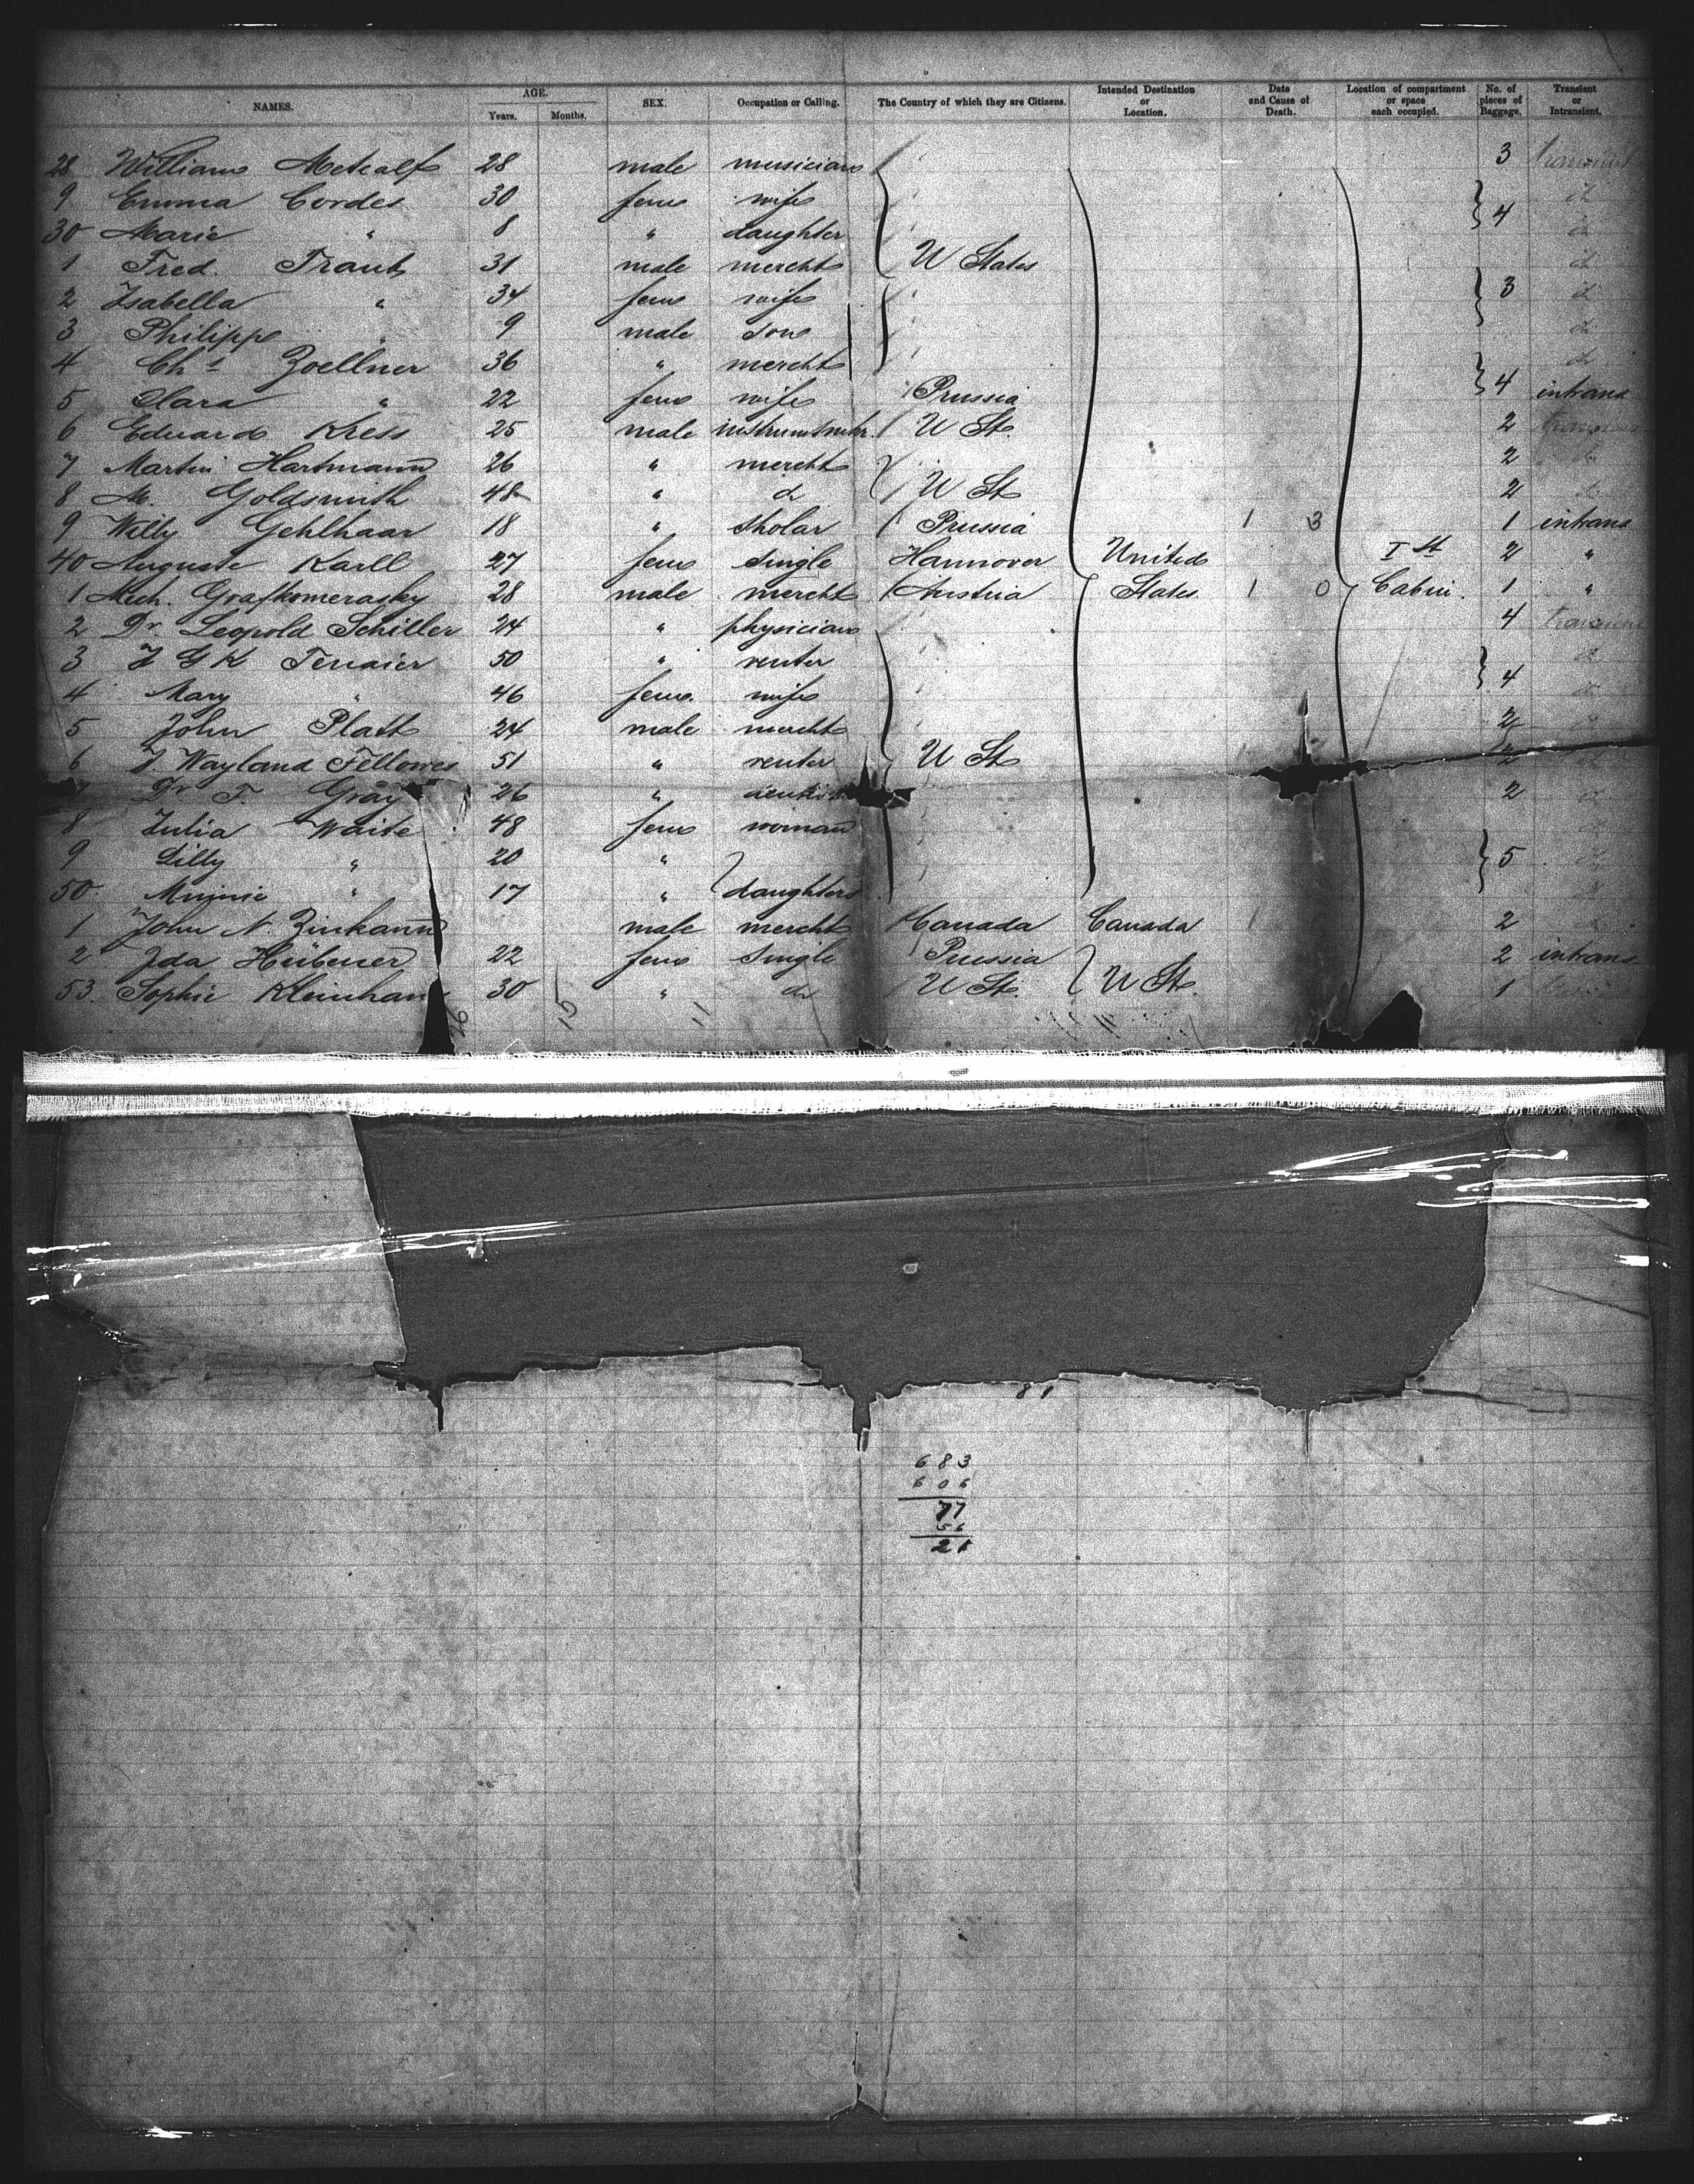 NAMES. AGE. Years. Months. SEX. Occupation or Calling. The Country of which they are Citizens. Intended Destination or Location. Date and Cause of Death. Location of compartment or space each occupied. No. of pieces of Baggage. Transient or Intransient.
28 William Metcalf 28 male musician 3 transient
9 Emma Cordes 30 fem wife d
30 Marie " 8 " daughter 4 d
1 Fred. Traub 31 male mercht U States d
2 Isabella " 34 fem wife 3 d
3 Philipp " 9 male son d
4 Chs Zoellner 36 " mercht d
5 Clara " 22 fem wife Prussia 4 intrans
6 Eduard Kress 25 male U St. 2
7 Martin Hartmann 26 " mercht 2
8 M. Goldsmith 48 " d U St 2 d
9 Willy Gehlhaar 18 " Sholar Prussia 1 3 1 intrans
40 Auguste Karll 27 fem single Hannover United Ist 2 "
1 Mich. 28 male mercht Austria States 1 0 Cabin. 1 "
2 Dr. Leopold Schiller 24 " physician 4
3 50 " renter d
4 Mary " 46 fem. wife 4 d
5 John Platt 24 male mercht 2
6 J. Wayland Fellowes 51 " renter U St 2
7 Dr. F. Gray 26 " 2 d
8 Julia Waite 48 fem woman
9 Lilly " 20 " 5
50 Minnie " 17 " daughters
1 John N. Zinkann male mercht Canada Canada 1 2
2 Ida Hübener 22 fem single Prussia 2 intrans
53. Sophie Kleinhans 30 " d U St. U St. 1
81
683
606
77
56
21